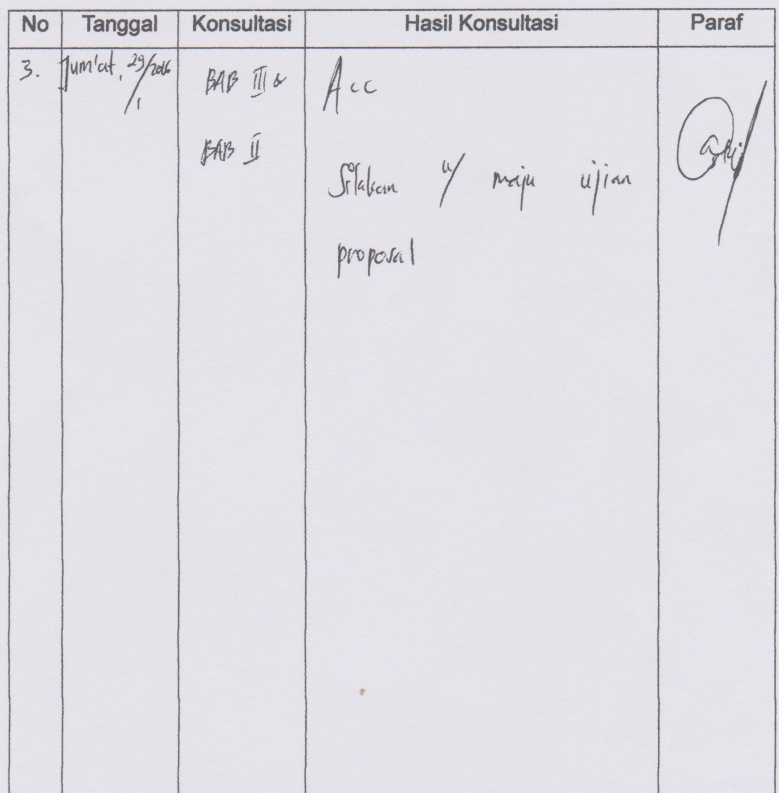 No Tanggal Konsultasi Hasil Konsultasi Paraf
3. Jum'at, 29/1 2016 BAB III & Acc
BAB II
Silakan u/ maju ujian
proposal